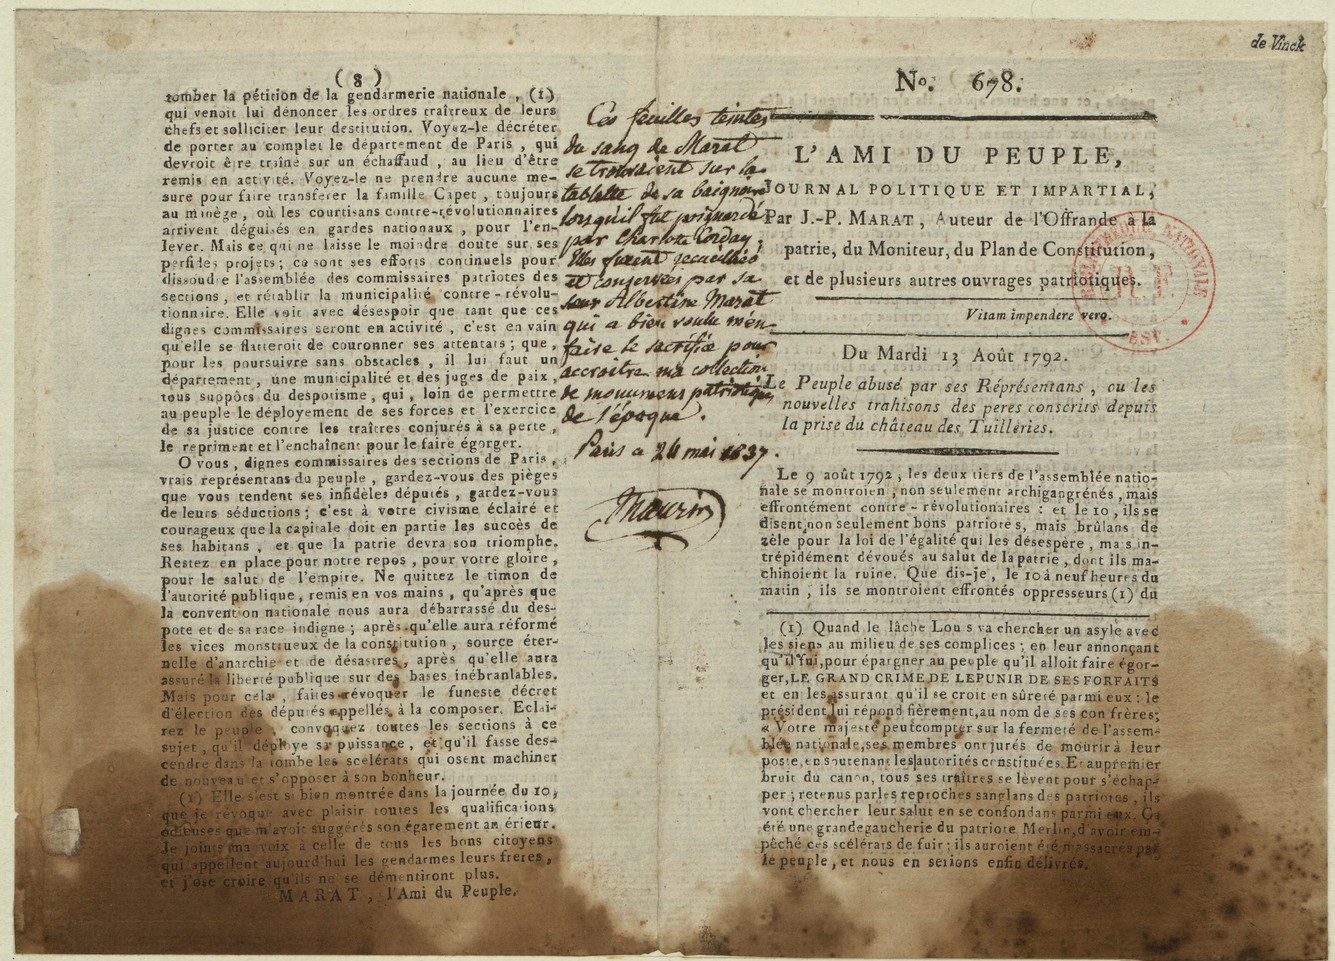 de Vinck
( 8 )
tomber la pétition de la gendarmerie nationale , (1)
qui venoit lui dénoncer les ordres traîtreux de leurs
chefs et solliciter leur destitution. Voyez-le décréter
de porter au complet le département de Paris , qui
devroit être traîné sur un échaffaud , au lieu d'être
remis en activité. Voyez-le ne prendre aucune me-
sure pour faire transférer la famille Capet , toujours
au minège , où les courtisans contre-révolutionnaires
arrivent déguisés en gardes nationaux , pour l'en-
lever. Mais ce qui ne laisse le moindre doute sur ses
perfides projets ; ce sont ses efforts continuels pour
dissoudre l'assemblée des commissaires patriotes des
sections , et rétablir la municipalité contre-révolu-
tionnaire. Elle voit avec désespoir que tant que ces
dignes commissaires seront en activité , c'est en vain
qu'elle se flatteroit de couronner ses attentats ; que ,
pour les poursuivre sans obstacles , il lui faut un
département , une municipalité et des juges de paix ,
tous suppôts du despotisme , qui , loin de permettre
au peuple le déployement de ses forces et l'exercice
de sa justice contre les traîtres conjurés à sa perte ,
le repriment et l'enchaînent pour le faire égorger.
O vous , dignes commissaires des sections de Paris ,
vrais représentans du peuple , gardez-vous des pièges
que vous tendent ses infidèles députés , gardez-vous
de leurs séductions ; c'est à votre civisme éclairé et
courageux que la capitale doit en partie les succès de
ses habitans , et que la patrie devra son triomphe.
Restez en place pour notre repos , pour votre gloire ,
pour le salut de l'empire. Ne quittez le timon de
l'autorité publique , remis en vos mains , qu'après que
la convention nationale nous aura débarrassé du des-
pote et de sa race indigne ; après qu'elle aura réformé
les vices monstrueux de la constitution , source éter-
nelle d'anarchie et de désastres , après qu'elle aura
assuré la liberté publique sur des bases inébranlables.
Mais pour cela , faites révoquer le funeste décret
d'élection des députés appellés à la composer. Eclai-
rez le peuple , convoquez toutes les sections à ce
sujet , qu'il déploye sa puissance , et qu'il fasse des-
cendre dans la tombe les scelérats qui osent machiner
de nouveau et s'opposer à son bonheur.
(1) Elle s'est si bien montrée dans la journée du 10,
que je révoque avec plaisir toutes les qualifications
odieuses que m'avoit suggérés son égarement antérieur.
Je joints ma voix à celle de tous les bons citoyens
qui appellent aujourd'hui les gendarmes leurs freres ,
et j'ose croire qu'ils ne se démentiront plus.
MARAT , l'Ami du Peuple.
Ces feuilles teintes
du sang de Marat
se trouvaient sur la
tablette de sa baignoire
lorsqu'il fut poignardé
par Charlotte Corday ;
Elles furent recueillies
et conservées par sa
sœur Albertine Marat
qui a bien voulu m'en
faire le sacrifice pour
accroitre ma collection
de monumens patriotiques
de l'époque.
Paris ce 24 mai 1837.
Maurin
No. 678.
L'AMI DU PEUPLE,
JOURNAL POLITIQUE ET IMPARTIAL,
Par J.-P. MARAT , Auteur de l'Offrande à la
patrie, du Moniteur, du Plan de Constitution,
et de plusieurs autres ouvrages patriotiques.
Vitam impendere vero.
BIBLIOTHEQUE NATIONALE
RF
EST.
Du Mardi 13 Août 1792.
Le Peuple abusé par ses Réprésentans , ou les
nouvelles trahisons des peres conscrits depuis
la prise du château des Tuilleries.
Le 9 août 1792 , les deux tiers de l'assemblée natio-
nale se montroient , non seulement archigangrénés , mais
effrontément contre-révolutionaires : et le 10 , ils se
disent non seulement bons patriotes , mais brûlans de
zèle pour la loi de l'égalité qui les désespère , mais in-
trépidément dévoués au salut de la patrie , dont ils ma-
chinoient la ruine. Que dis-je , le 10 à neuf heures du
matin , ils se montroient effrontés oppresseurs (1) du
(1) Quand le lâche Louis va chercher un asyle avec
les siens au milieu de ses complices ; en leur annonçant
qu'il fui,pour épargner au peuple qu'il alloit faire égor-
ger,LE GRAND CRIME DE LE PUNIR DE SES FORFAITS
et en les assurant qu'il se croit en sûreté parmi eux : le
président lui répond fièrement,au nom de ses confrères;
« Votre majesté peut compter sur la fermeté de l'assem-
blée nationale,ses membres ont jurés de mourir à leur
poste,en soutenant les autorités constituées. Et au premier
bruit du canon, tous ses traîtres se lèvent pour s'échap-
per ; retenus par les reproches sanglans des patriotes , ils
vont chercher leur salut en se confondans parmi eux. Ça
été une grande gaucherie du patriote Merlin,d'avoir em-
pêché ces scélérats de fuir ; ils auroient été massacrés par
le peuple , et nous en serions enfin délivrés.